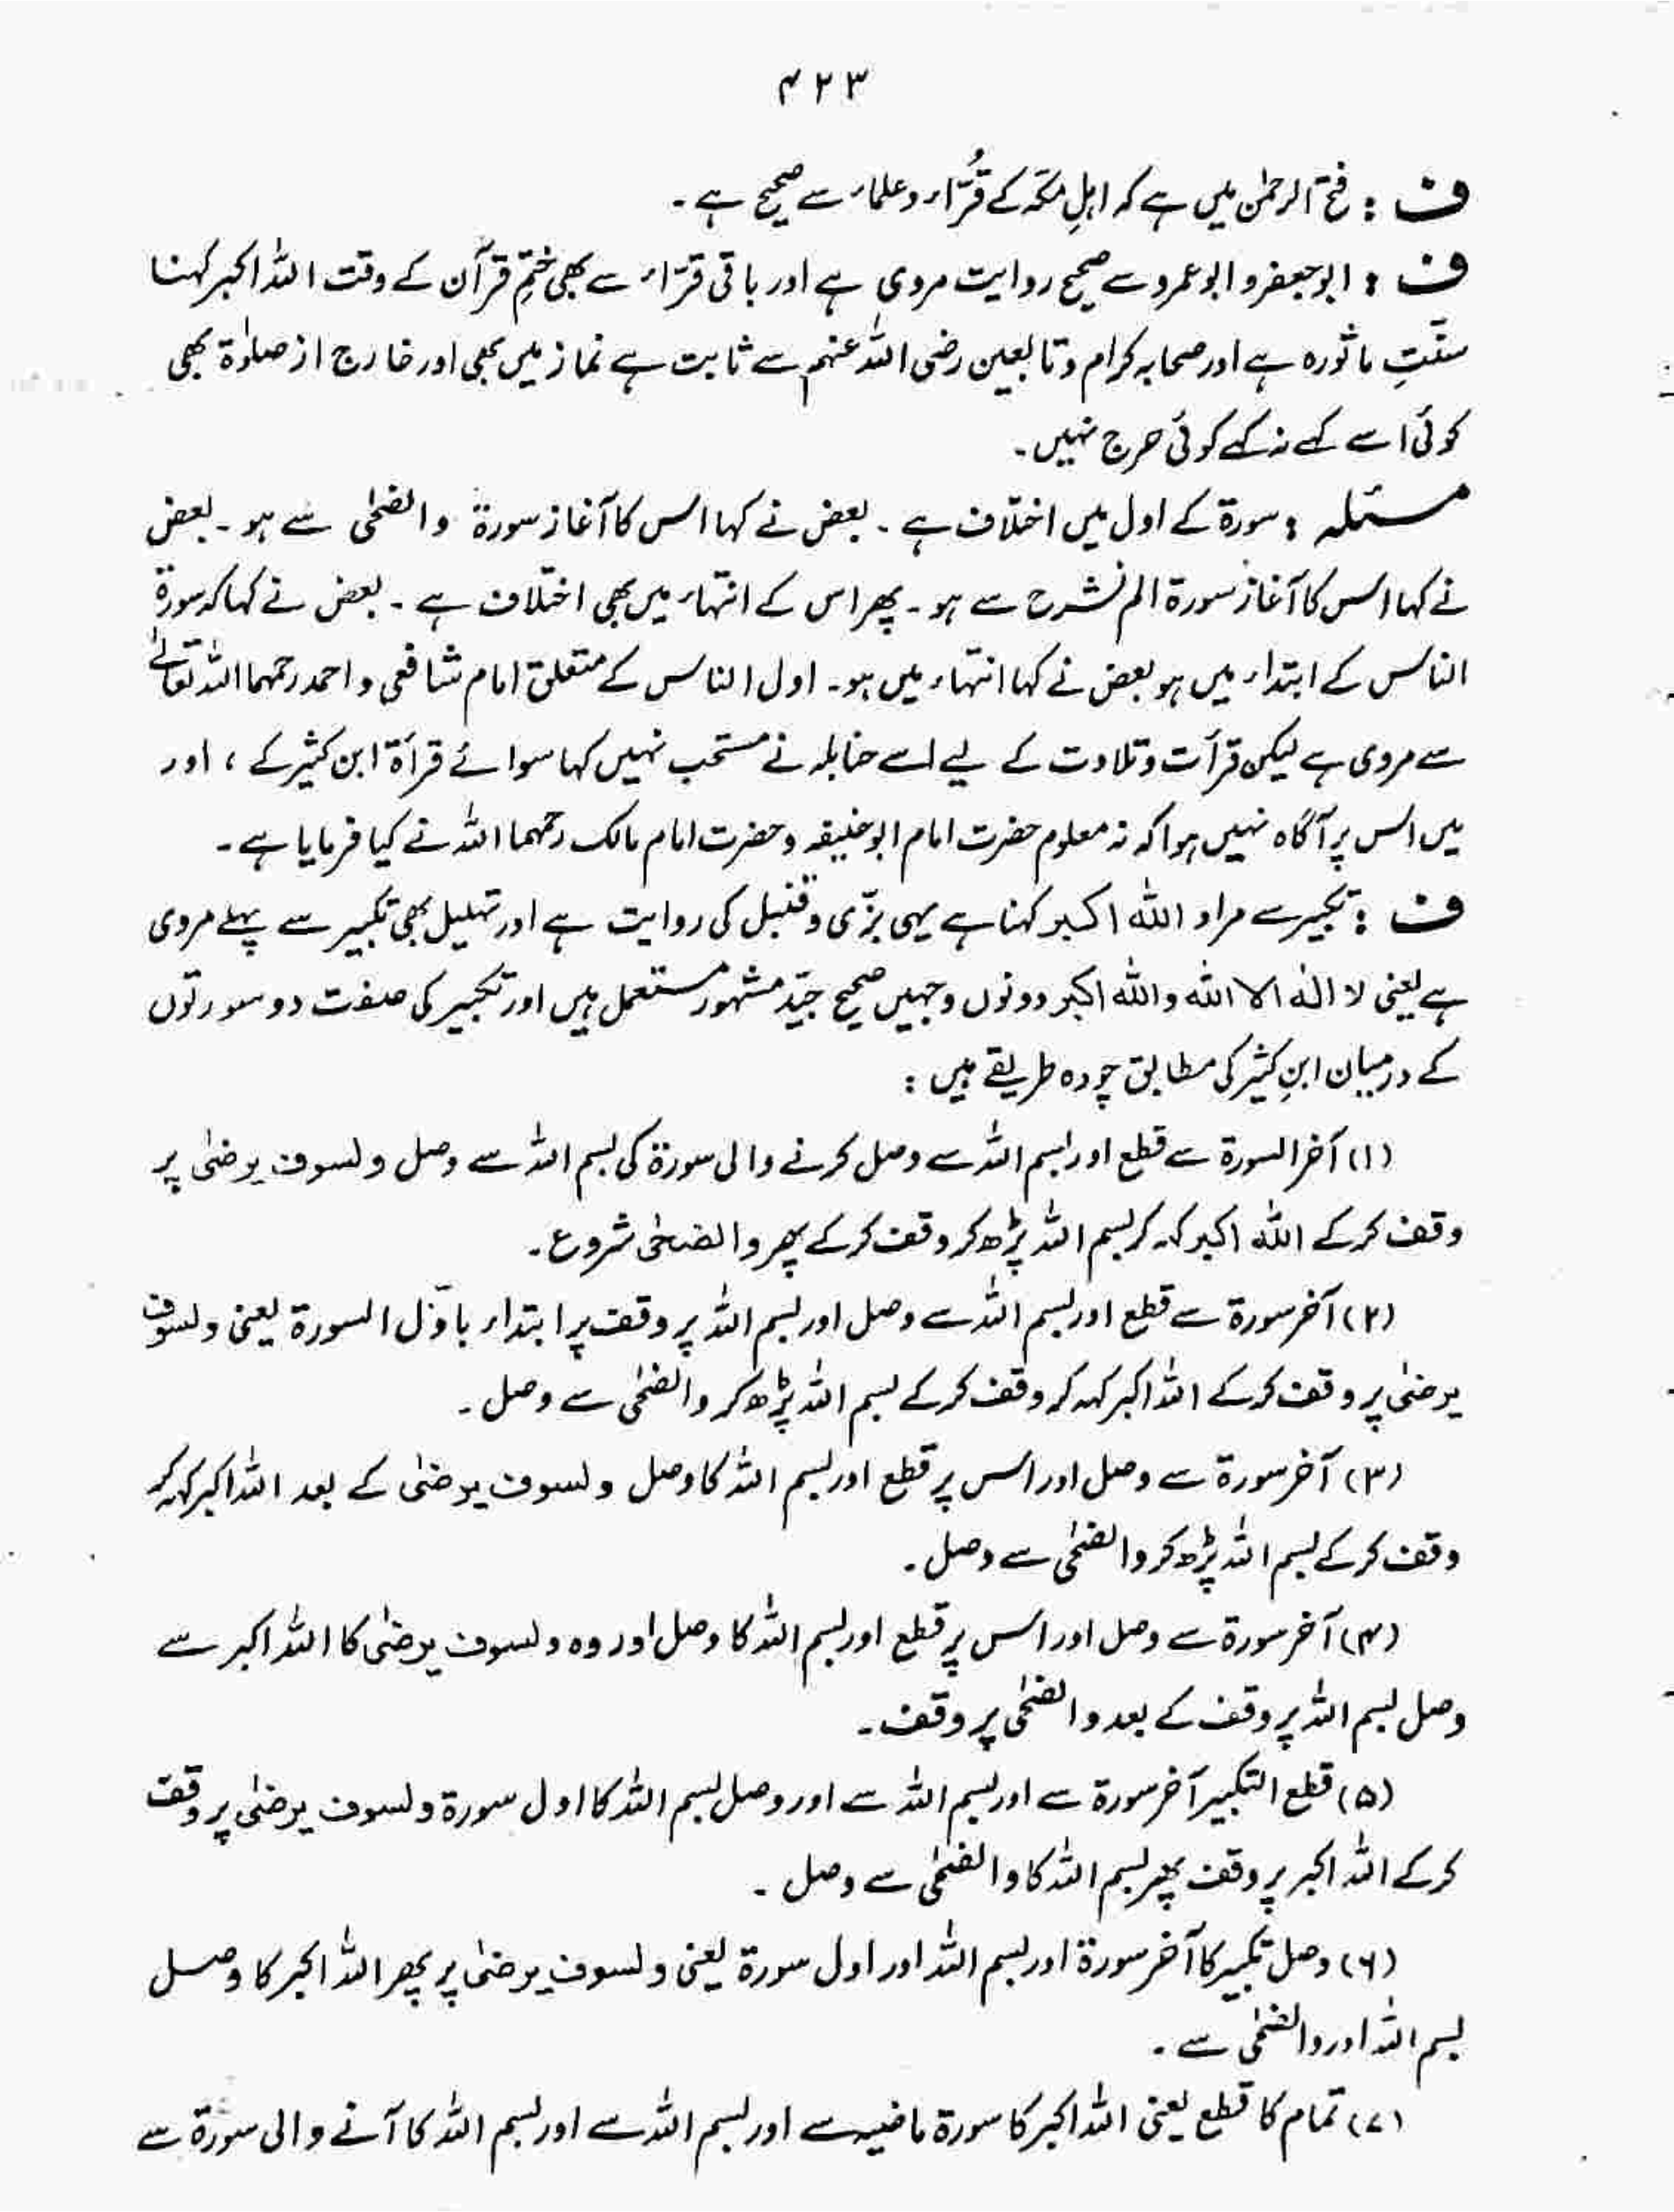 ۴۲۳
ف : فتح الرحمٰن میں ہے کہ اہلِ مکّہ کے قُرّاء و علماء سے صحیح ہے ۔
ف : ابوجعفر و ابو عمرو سے صحیح روایت مروی ہے اور باقی قرّاء سے بھی ختمِ قرآن کے وقت اللہ اکبر کہنا
سنّتِ ماثورہ ہے اور صحابہ کرام و تابعین رضی اللہ عنہم سے ثابت ہے نماز میں بھی اور خارج از صلوٰۃ بھی
کوئی اسے کہے نہ کہے کوئی حرج نہیں ۔
مسئلہ : سورۃ کے اول میں اختلاف ہے ۔ بعض نے کہا اس کا آغاز سورۃ والضحٰی سے ہو ۔ بعض
نے کہا اس کا آغاز سورۃ الم نشرح سے ہو ۔ پھر اس کے انتہاء میں بھی اختلاف ہے ۔ بعض نے کہا کہ سورۃ
الناس کے ابتداء میں ہو بعض نے کہا انتہاء میں ہو ۔ اول الناس کے متعلق امام شافعی و احمد رحمہما اللہ تعالٰے
سے مروی ہے لیکن قرأت و تلاوت کے لیے اسے حنابلہ نے مستحب نہیں کہا سوائے قرأۃ ابن کثیر کے ، اور
میں اس پر آگاہ نہیں ہوا کہ نہ معلوم حضرت امام ابوحنیفہ و حضرت امام مالک رحمہما اللہ نے کیا فرمایا ہے ۔
ف : تکبیر سے مراد اللہ اکبر کہنا ہے یہی بزّی و قنبل کی روایت ہے اور تہلیل بھی تکبیر سے پہلے مروی
ہے یعنی لا الٰہ الا اللہ واللہ اکبر دونوں وجہیں صحیح جیّد مشہور مستعمل ہیں اور تکبیر کی صفت دو سورتوں
کے درمیان ابنِ کثیر کی مطابق چودہ طریقے ہیں :
(۱) آخر السورۃ سے قطع اور بسم اللہ سے وصل کرنے والی سورۃ کی بسم اللہ سے وصل ولسوف یرضٰی پر
وقف کرکے اللہ اکبر کہہ کر بسم اللہ پڑھ کر وقف کرکے پھر والضحٰی شروع ۔
(۲) آخر سورۃ سے قطع اور بسم اللہ سے وصل اور بسم اللہ پر وقف پر ابتداء باوّل السورۃ یعنی ولسوف
یرضٰی پر وقف کرکے اللہ اکبر کہہ کر وقف کرکے بسم اللہ پڑھ کر والضحٰی سے وصل ۔
(۳) آخر سورۃ سے وصل اور اس پر قطع اور بسم اللہ کا وصل ولسوف یرضٰی کے بعد اللہ اکبر کہہ کر
وقف کرکے بسم اللہ پڑھ کر والضحٰی سے وصل ۔
(۴) آخر سورۃ سے وصل اور اس پر قطع اور بسم اللہ کا وصل اور وہ ولسوف یرضٰی کا اللہ اکبر سے
وصل بسم اللہ پر وقف کے بعد والضحٰی پر وقف ۔
(۵) قطع التکبیر آخر سورۃ سے اور بسم اللہ سے اور وصل بسم اللہ کا اول سورۃ ولسوف یرضٰی پر وقف
کرکے اللہ اکبر پر وقف پھر بسم اللہ کا والضحٰی سے وصل ۔
(۶) وصل تکبیر کا آخر سورۃ اور بسم اللہ اور اول سورۃ یعنی ولسوف یرضٰی پر پھر اللہ اکبر کا وصل
بسم اللہ اور والضحٰی سے ۔
(۷) تمام کا قطع یعنی اللہ اکبر کا سورۃ ماضیہ سے اور بسم اللہ سے اور بسم اللہ کا آنے والی سورۃ سے